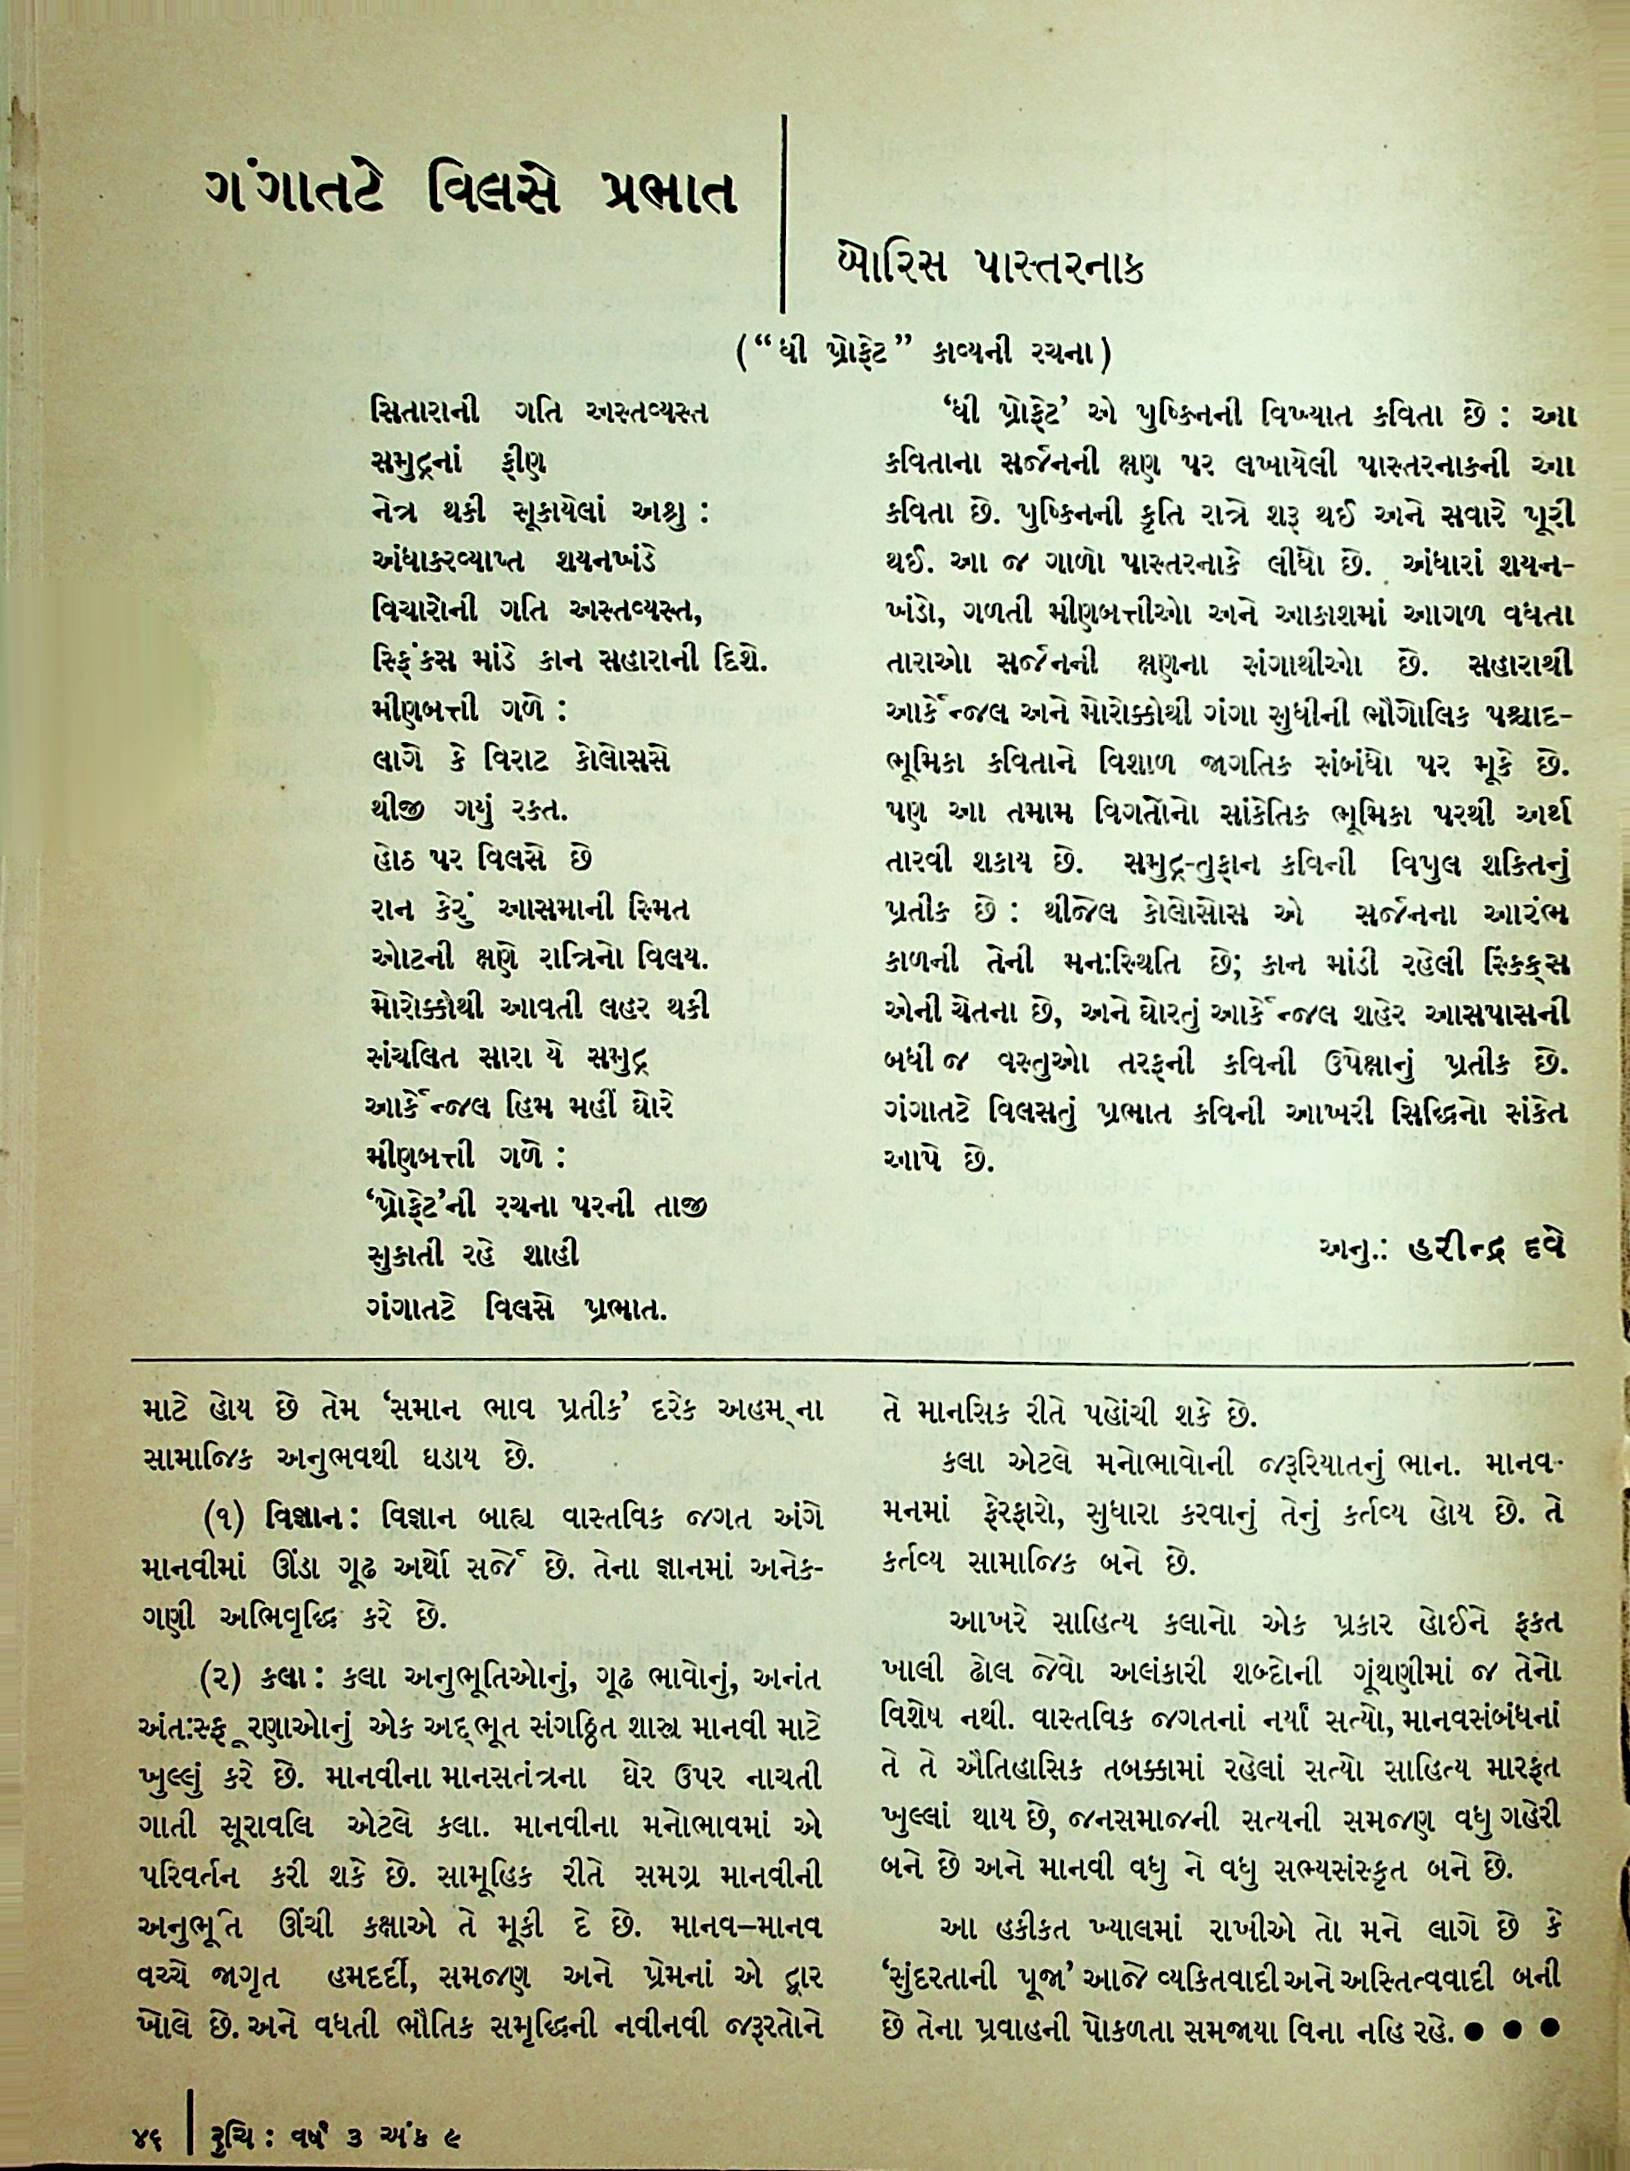 ગંગાતટે વિલસે પ્રભાત
બોરિસ પાસ્તરનાક
(“ધી પ્રોફેટ” કાવ્યની રચના)
સિતારાની ગતિ અસ્તવ્યસ્ત
સમુદ્રનાં ફીણ
નેત્ર થકી સૂકાયેલાં અશ્રુ :
અંધાકરવ્યાપ્ત શયનખંડે
વિચારોની ગતિ અસ્તવ્યસ્ત,
સ્ફિંકસ માંડે કાન સહારાની દિશે.
મીણબત્તી ગળે :
લાગે કે વિરાટ કોલોસસે
થીજી ગયું રક્ત.
હોઠ પર વિલસે છે
રાન કેરું આસમાની સ્મિત
ઓટની ક્ષણે રાત્રિનો વિલય.
મોરોક્કોથી આવતી લહર થકી
સંચલિત સારા યે સમુદ્ર
આર્કેન્જલ હિમ મહીં ઘોરે
મીણબત્તી ગળે :
‘પ્રોફેટ’ની રચના પરની તાજી
સુકાતી રહે શાહી
ગંગાતટે વિલસે પ્રભાત.
‘ધી પ્રોફેટ’ એ પુષ્કિનની વિખ્યાત કવિતા છે : આ
કવિતાના સર્જનની ક્ષણ પર લખાયેલી પાસ્તરનાકની આ
કવિતા છે. પુષ્કિનની કૃતિ રાત્રે શરૂ થઈ અને સવારે પૂરી
થઈ. આ જ ગાળો પાસ્તરનાકે લીધો છે. અંધારાં શયન-
ખંડો, ગળતી મીણબત્તીઓ અને આકાશમાં આગળ વધતા
તારાઓ સર્જનની ક્ષણના સંગાથીઓ છે. સહારાથી
આર્કેન્જલ અને મોરોક્કોથી ગંગા સુધીની ભૌગોલિક પશ્ચાદ-
ભૂમિકા કવિતાને વિશાળ જાગતિક સંબંધો પર મૂકે છે.
પણ આ તમામ વિગતોનો સાંકેતિક ભૂમિકા પરથી અર્થ
તારવી શકાય છે. સમુદ્ર-તુફાન કવિની વિપુલ શક્તિનું
પ્રતીક છે : થીજેલ કોલોસોસ એ સર્જનના આરંભ
કાળની તેની મન:સ્થિતિ છે; કાન માંડી રહેલી સ્ફિકક્સ
એની ચેતના છે, અને ઘોરતું આર્કેન્જલ શહેર આસપાસની
બધી જ વસ્તુઓ તરફની કવિની ઉપેક્ષાનું પ્રતીક છે.
ગંગાતટે વિલસતું પ્રભાત કવિની આખરી સિદ્ધિનો સંકેત
આપે છે.
અનુ.: હરીન્દ્ર દવે
માટે હોય છે તેમ ‘સમાન ભાવ પ્રતીક’ દરેક અહમ્‌ના
સામાજિક અનુભવથી ઘડાય છે.
(૧) વિજ્ઞાન : વિજ્ઞાન બાહ્ય વાસ્તવિક જગત અંગે
માનવીમાં ઊંડા ગૂઢ અર્થો સર્જે છે. તેના જ્ઞાનમાં અનેક-
ગણી અભિવૃદ્ધિ કરે છે.
(૨) કલા : કલા અનુભૂતિઓનું, ગૂઢ ભાવોનું, અનંત
અંત:સ્ફૂરણાઓનું એક અદ્‌ભૂત સંગઠ્ઠિત શાસ્ત્ર માનવી માટે
ખુલ્લું કરે છે. માનવીના માનસતંત્રના ઘેર ઉપર નાચતી
ગાતી સૂરાવલિ એટલે કલા. માનવીના મનોભાવમાં એ
પરિવર્તન કરી શકે છે. સામૂહિક રીતે સમગ્ર માનવીની
અનુભૂતિ ઊંચી કક્ષાએ તે મૂકી દે છે. માનવ–માનવ
વચ્ચે જાગૃત હમદર્દી, સમજણ અને પ્રેમનાં એ દ્વાર
ખોલે છે. અને વધતી ભૌતિક સમૃદ્ધિની નવીનવી જરૂરતોને
તે માનસિક રીતે પહોંચી શકે છે.
કલા એટલે મનોભાવોની જરૂરિયાતનું ભાન. માનવ-
મનમાં ફેરફારો, સુધારા કરવાનું તેનું કર્તવ્ય હોય છે. તે
કર્તવ્ય સામાજિક બને છે.
આખરે સાહિત્ય કલાનો એક પ્રકાર હોઈને ફક્ત
ખાલી ઢોલ જેવો અલંકારી શબ્દોની ગૂંથણીમાં જ તેનો
વિશેષ નથી. વાસ્તવિક જગતનાં નર્યાં સત્યો, માનવસંબંધનાં
તે તે ઐતિહાસિક તબક્કામાં રહેલાં સત્યો સાહિત્ય મારફત
ખુલ્લાં થાય છે, જનસમાજની સત્યની સમજણ વધુ ગહેરી
બને છે અને માનવી વધુ ને વધુ સભ્યસંસ્કૃત બને છે.
આ હકીકત ખ્યાલમાં રાખીએ તો મને લાગે છે કે
‘સુંદરતાની પૂજા’ આજે વ્યકિતવાદી અને અસ્તિત્વવાદી બની
છે તેના પ્રવાહની પોકળતા સમજાયા વિના નહિ રહે. ● ● ●
૪૬ | રુચિ : વર્ષ ૩ અંક ૯